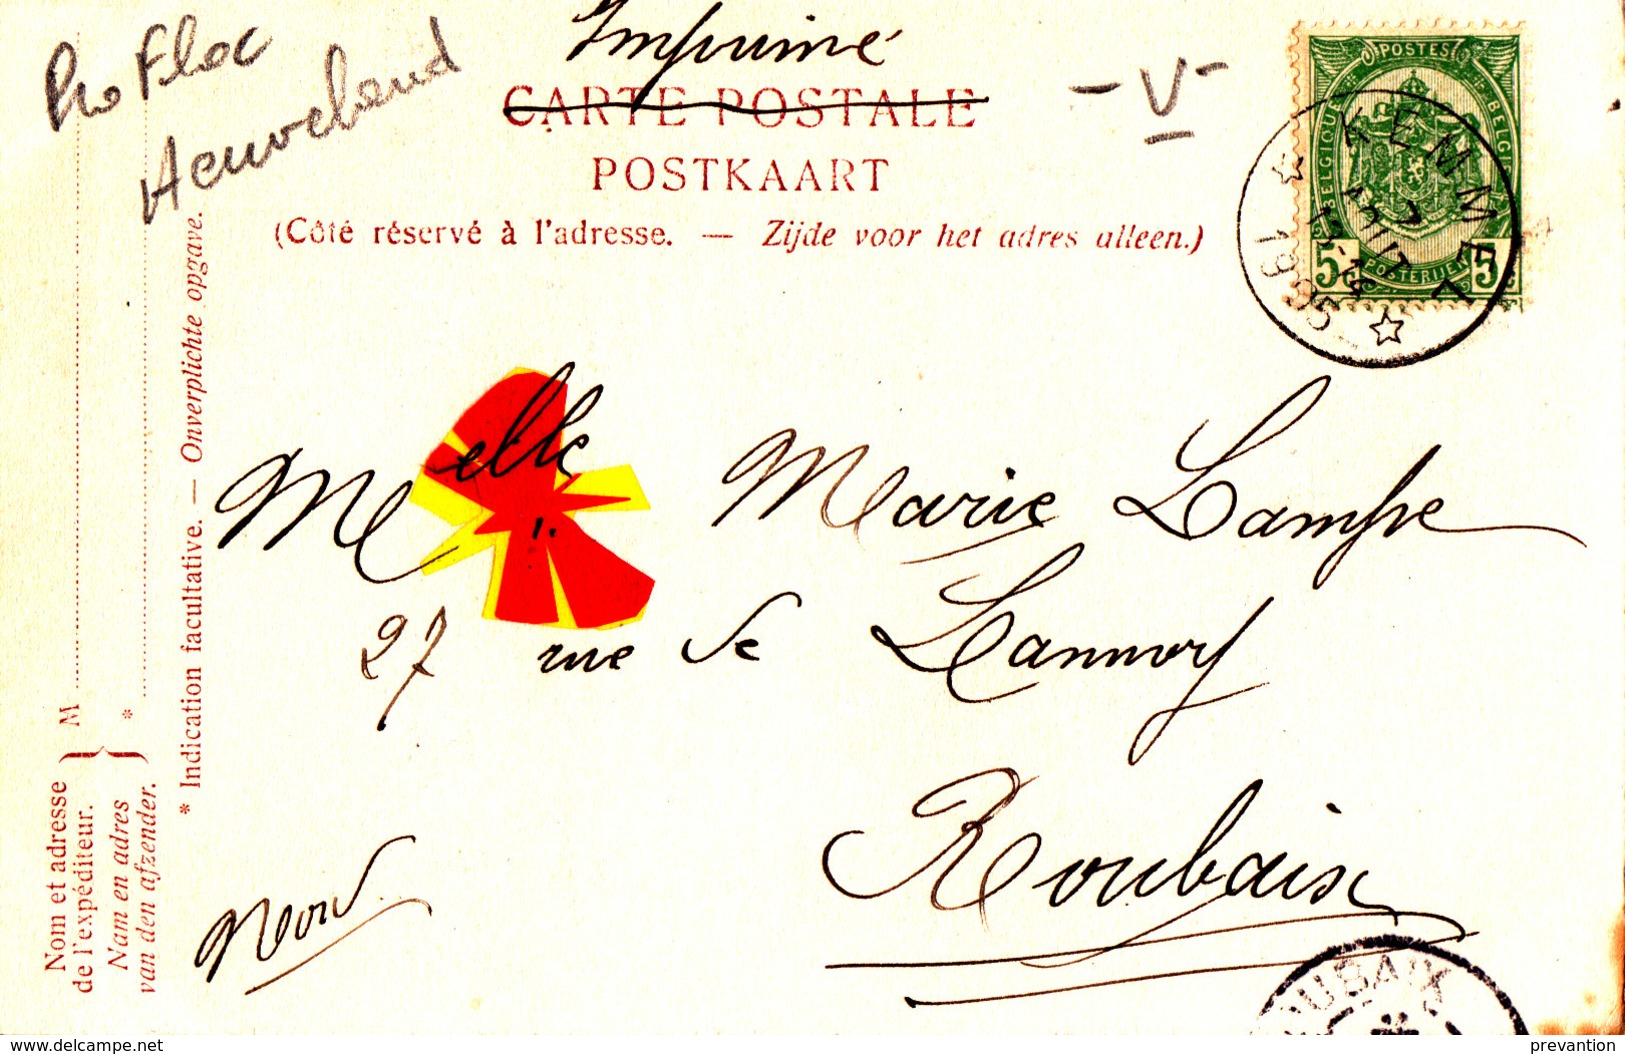 Imprimé
Pro Floc
Heuveland
- V -
CARTE POSTALE
POSTKAART
(Côté réservé à l'adresse. — Zijde voor het adres alleen.)
POSTES
BELGIQUE
BELGIË
5 POSTERIJEN 5
KEMMEL
13-14
1905
Melle Marie Lampe
27 rue de Lannoy
Roubaix
Nord
ROUBAIX
Nom et adresse
de l'expéditeur.
Nam en adres
van den afzender.
M
*
* Indication facultative. — Onverplichte opgave.
www.delcampe.net
prevantion